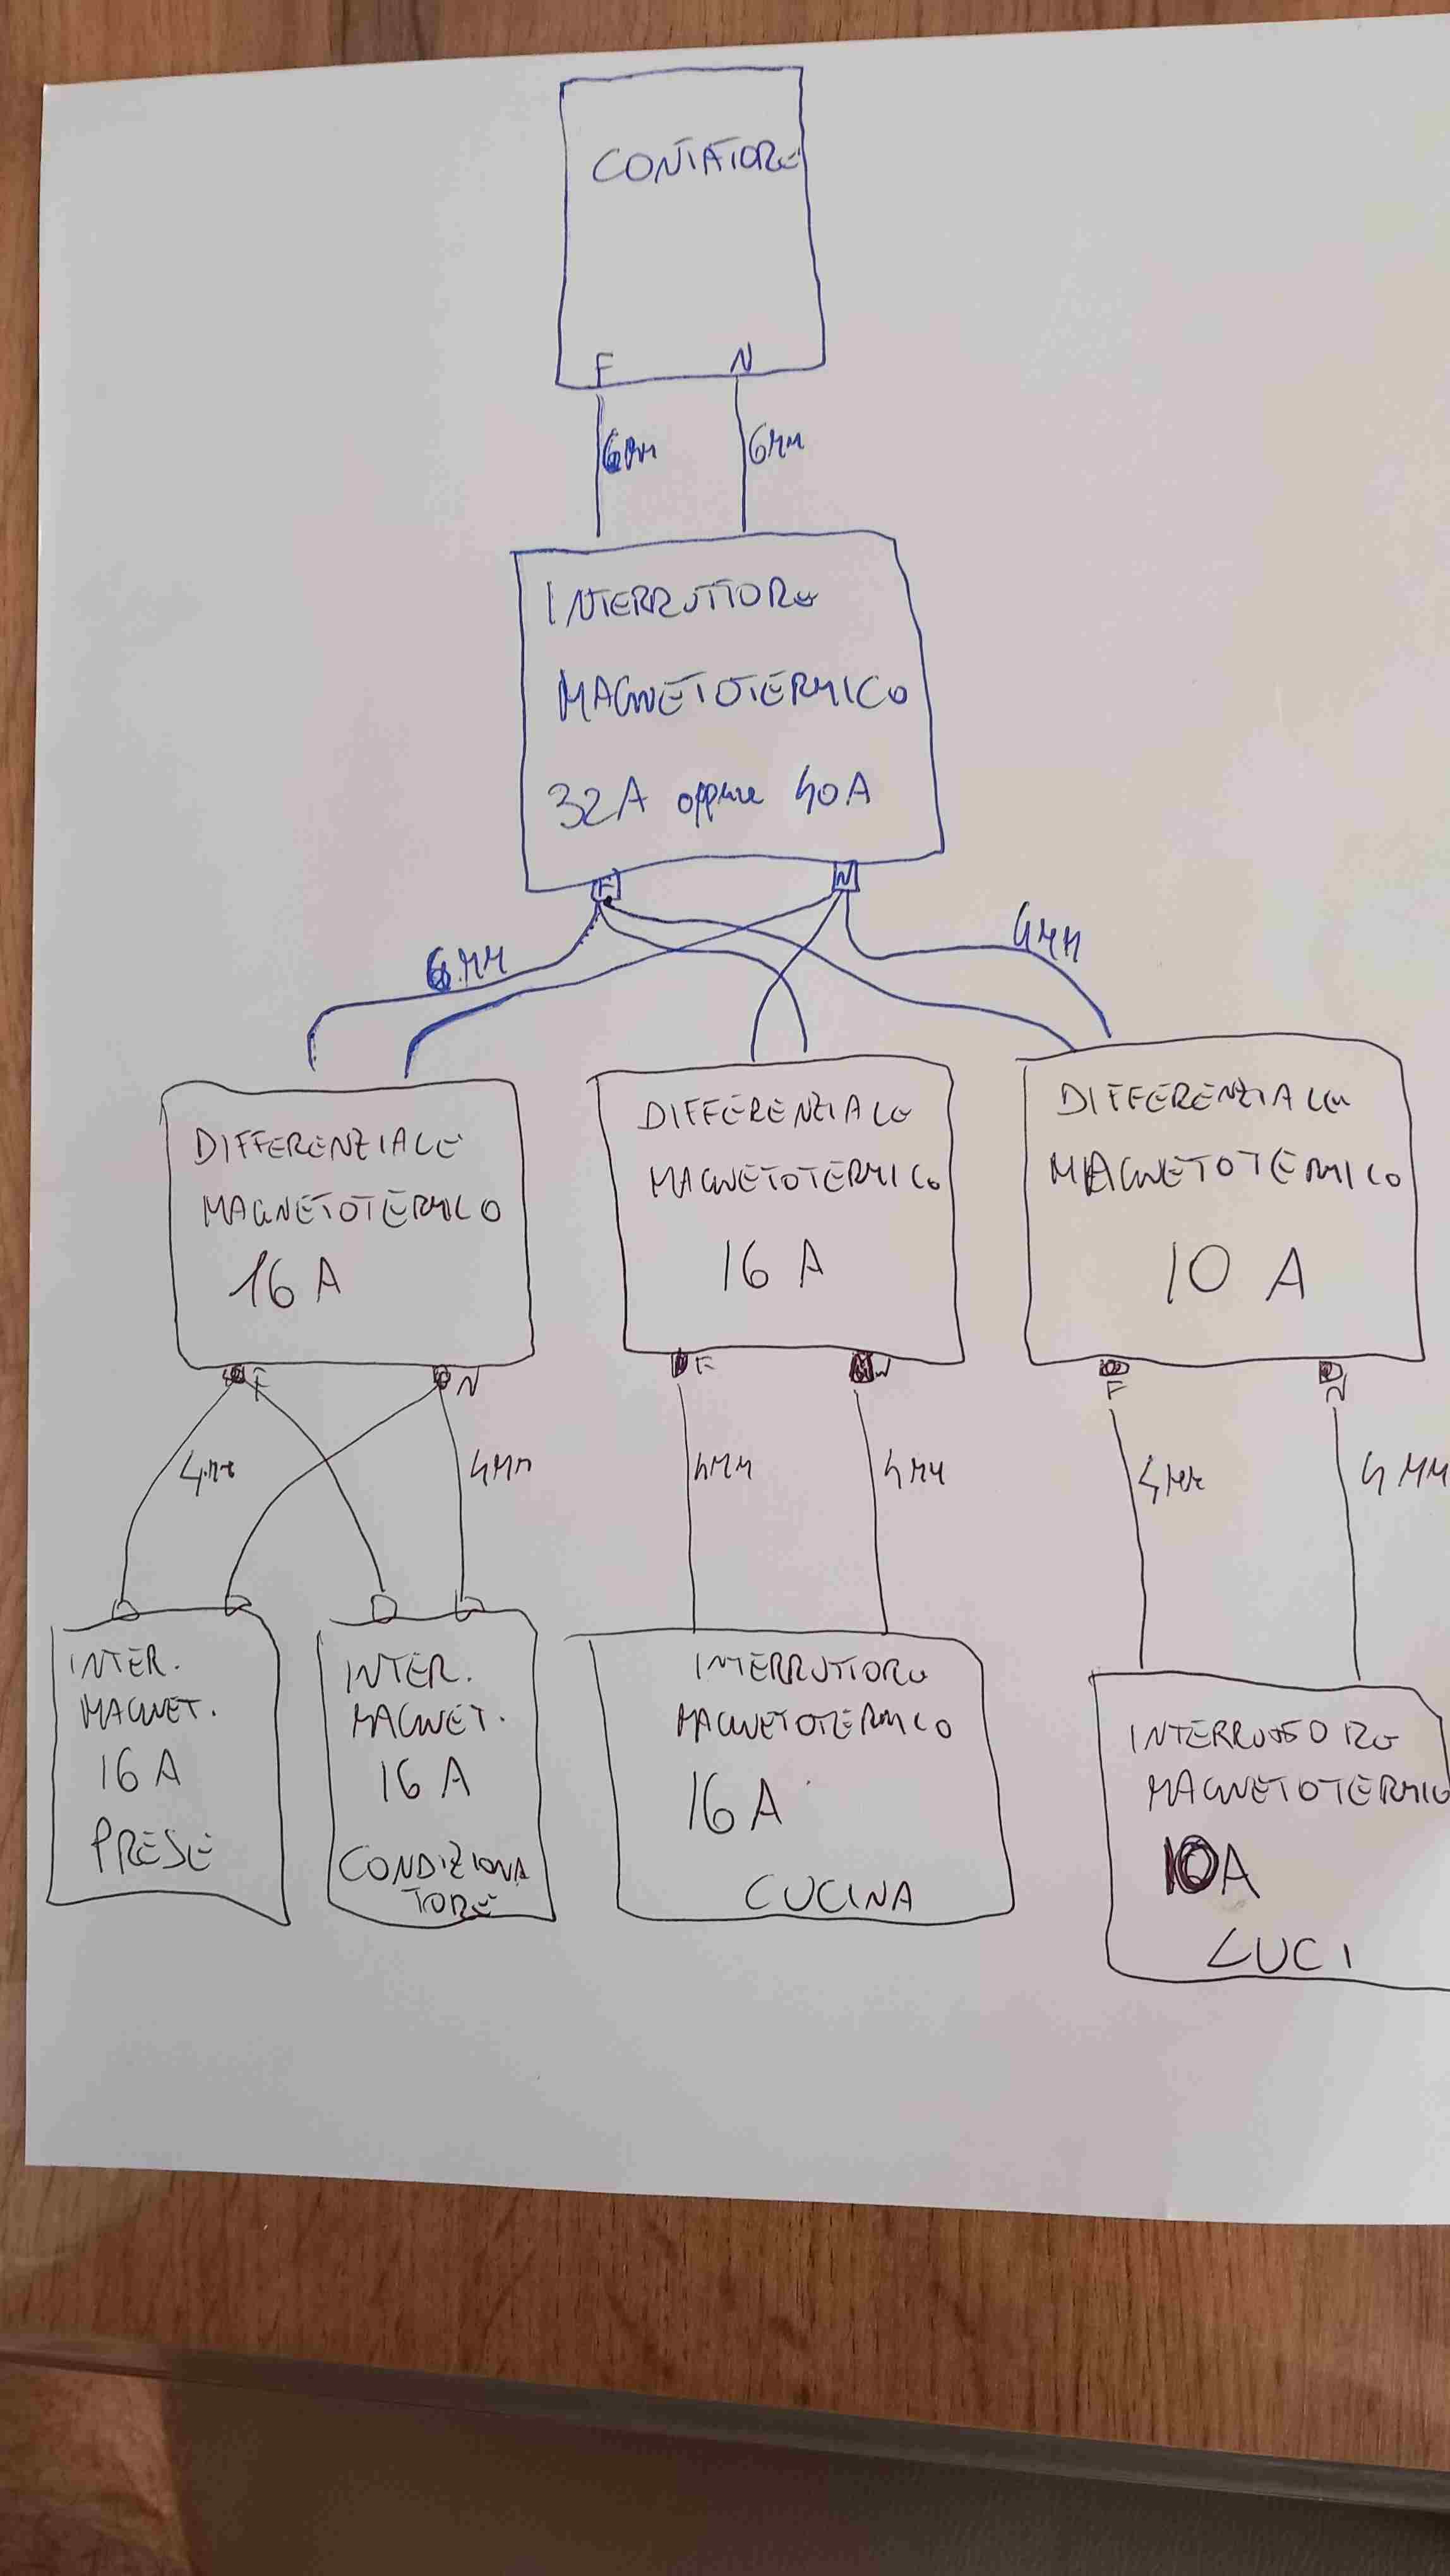 CONTATORE
F N
6mm 6mm
INTERRUTTORE
MAGNETOTERMICO
32A oppure 40A
F N
6mm 4mm
DIFFERENZIALE
MAGNETOTERMICO
16 A
F N
DIFFERENZIALE
MAGNETOTERMICO
16 A
F N
DIFFERENZIALE
MAGNETOTERMICO
10 A
F N
4mm 4MM 4MM 4MM 4MM 4MM
INTER.
MAGNET.
16 A
PRESE
INTER.
MAGNET.
16 A
CONDIZIONA
TORE
INTERRUTTORE
MAGNETOTERMICO
16 A
CUCINA
INTERRUTTORE
MAGNETOTERMICO
10A
LUCI